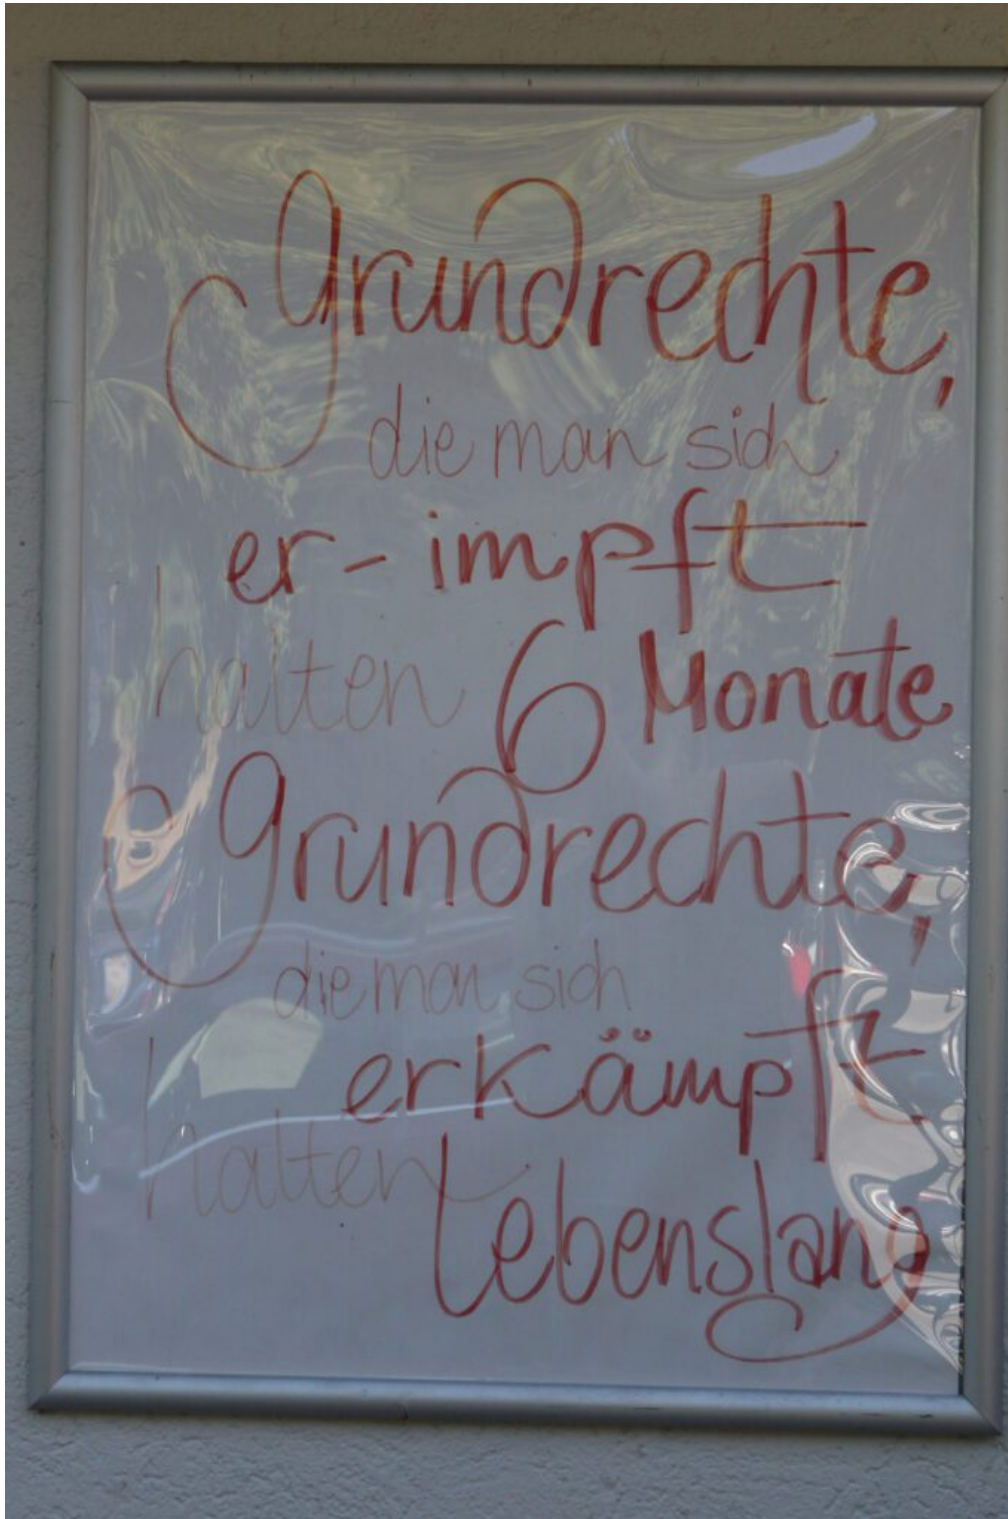 Grundrechte,
die man sich
er-impft
halten 6 Monate
Grundrechte,
die man sich
erkämpft
halten
Lebenslang